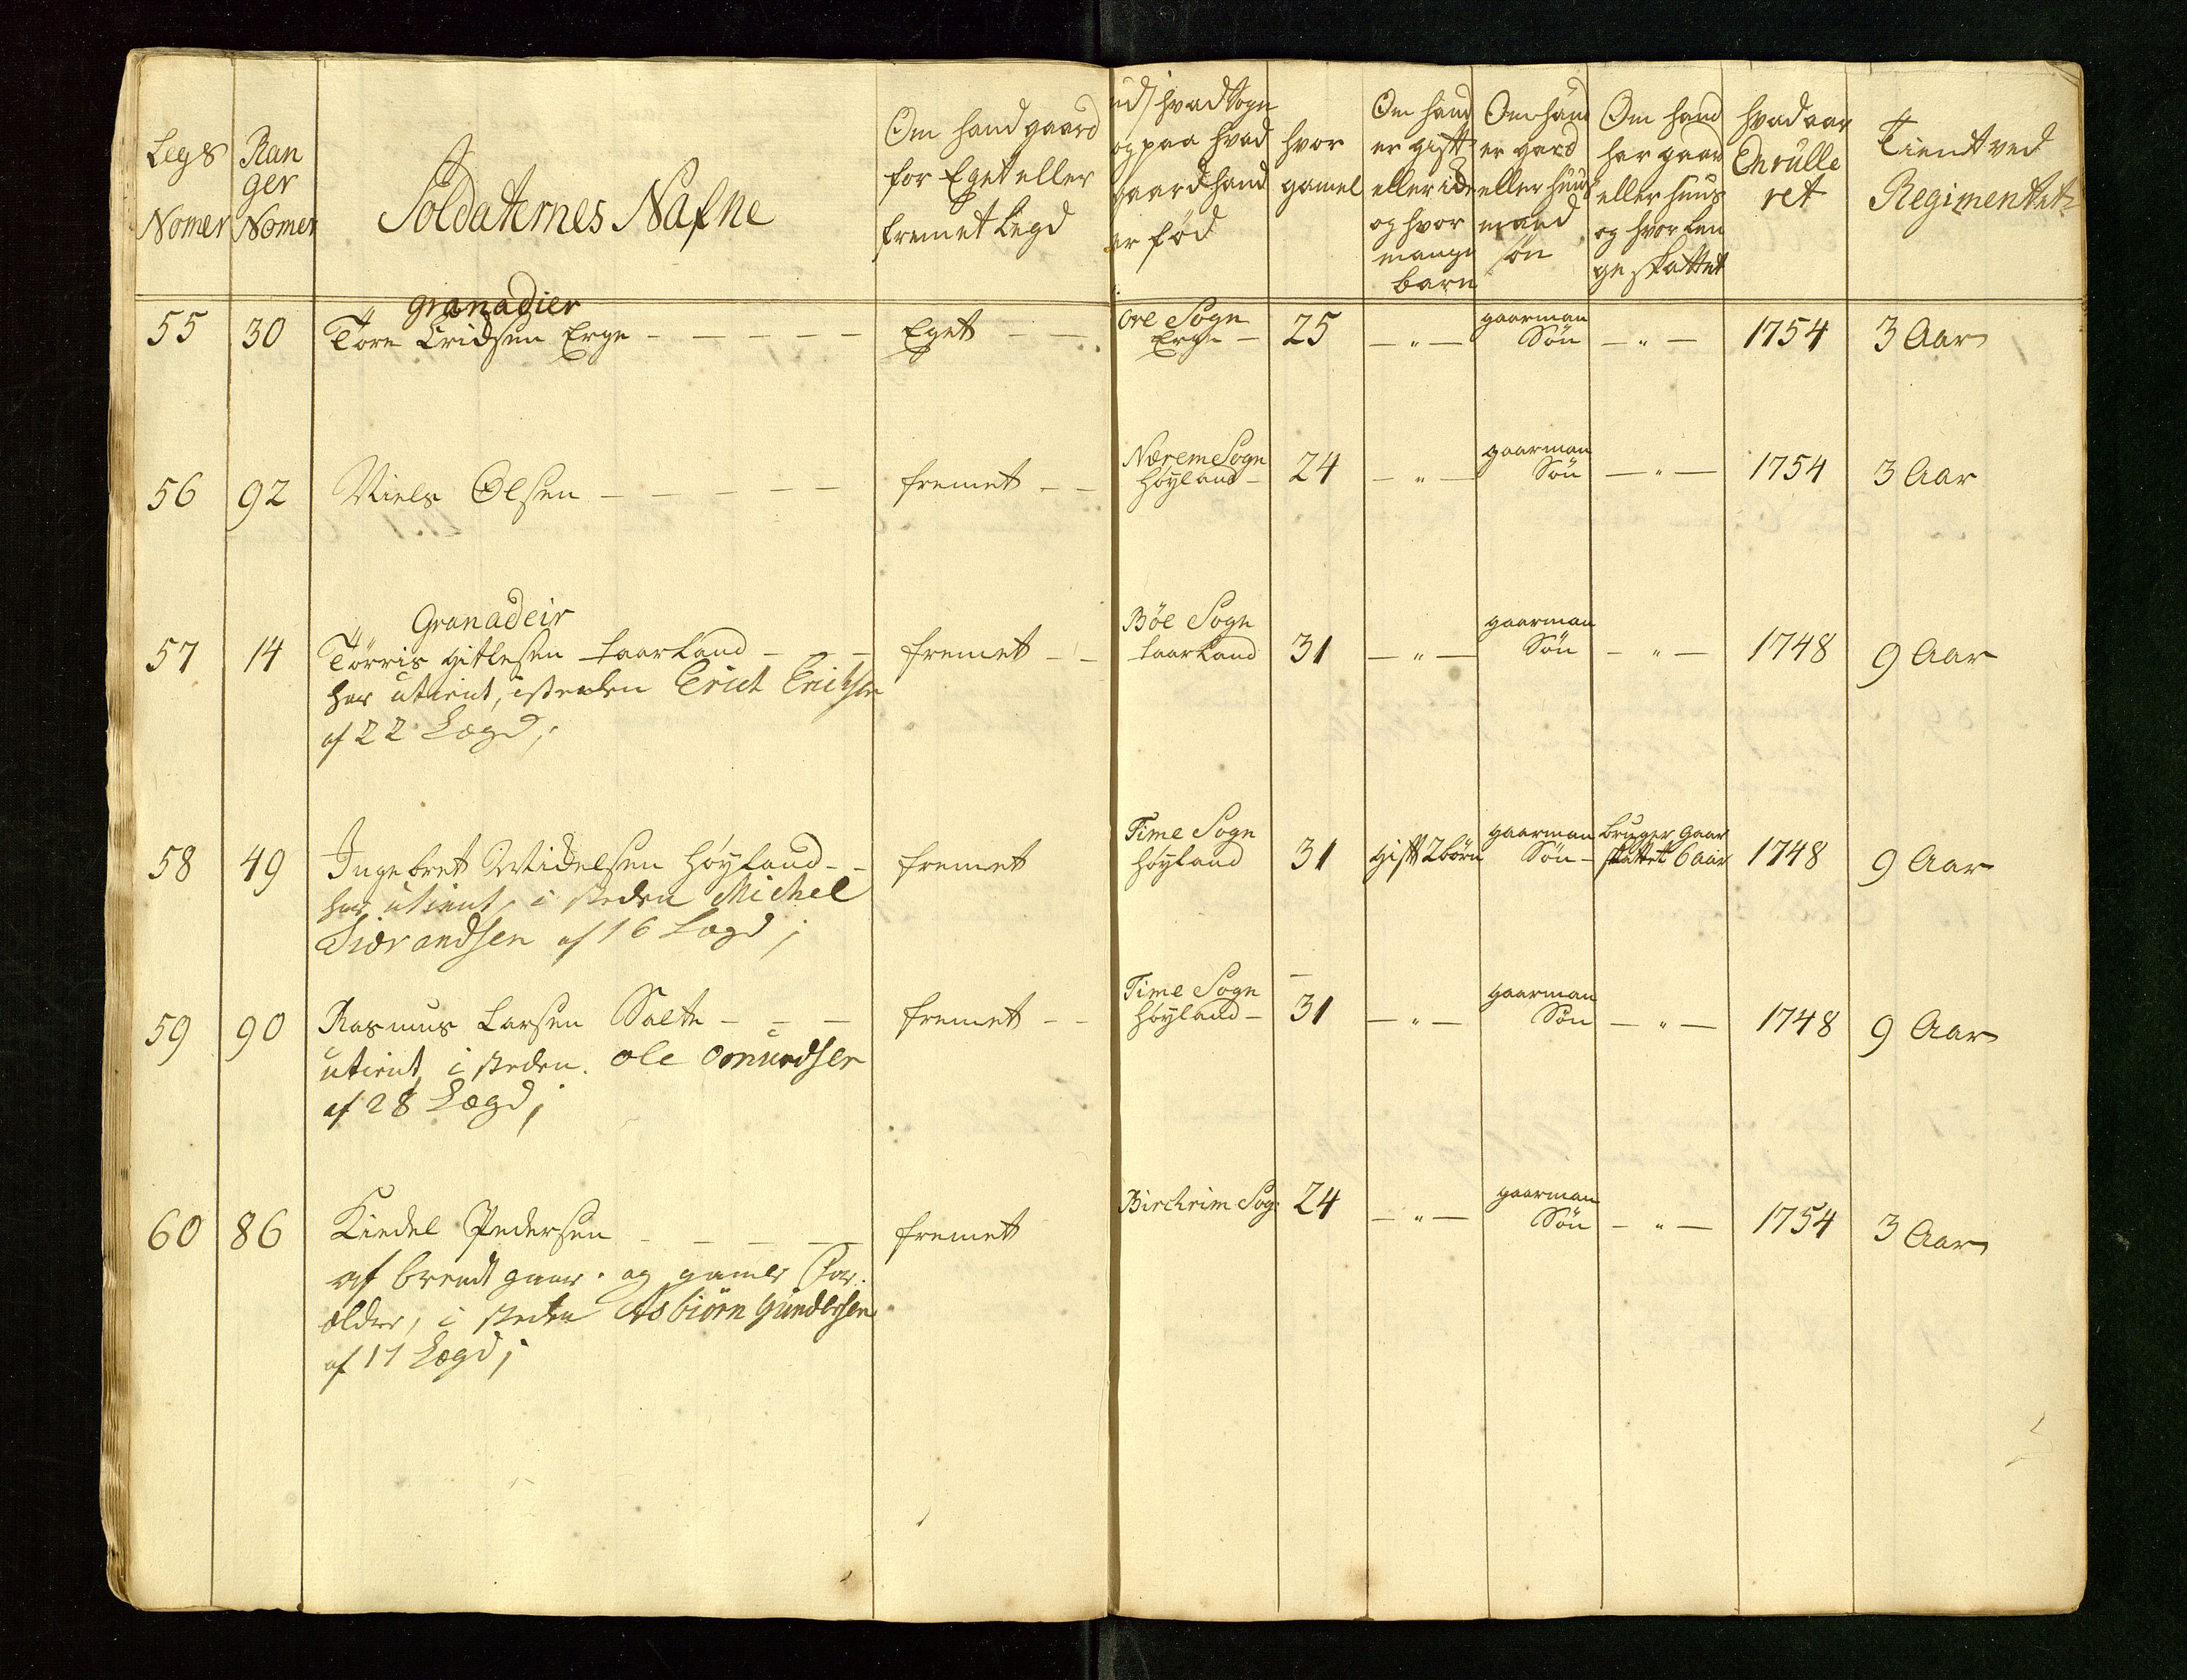 Legs
Nomer
Ran
ger
Nomer
Soldaternes Nafne
Om hand gaard
for Eget eller
fremet Legd
ud/ hvad Sogn
og paa hvad
gaard hand
er fød
hvor
gamel
Om hand
er gift
eller ide
og hvor
mange
barn
Om hand
er gard
eller huus
mand
søn
Om hand
har gaar
eller huus
og hvor len
ge skattet
hvad aar
Enrulle
ret
Tiendt ved
Regimentet
granadier
55 30 Tore Eridsen Erge Eget
ore Sogn
Erge 25 — " — gaarman
Søn — " — 1754 3 Aar
56 92 Niels Olsen fremet
Nærem Sogn
Høyland 24 — " — gaarman
Søn — " — 1754 3 Aar
Granadeir
57 14 Tørris Gitlesen Taarland fremet
har utient, i steden Erich Erichsen
af 22 Lægd;
Bøe Sogn
Taarland 31 — " — gaarman
Søn — " — 1748 9 Aar
58 49 Ingebret Midelsen Høyland fremet
har utient, i steden Michel
Siørandsen af 16 Lægd;
Time Sogn
Høyland 31 gift 2 børn gaarman
Søn bruger gaar
skattet 6 aar 1748 9 Aar
59 90 Rasmus Larsen Salte fremet
utient, i steden Ole Omundsen
af 28 Lægd;
Time Sogn
Høyland 31 — " — gaarman
Søn — " — 1748 9 Aar
60 86 Kiedel Pedersen fremet
af brendt gaar og gamle For
ældre, i steden Asbiørn Gundersen
af 17 Lægd;
Birchrim Sog: 24 — " — gaarman
Søn — " — 1754 3 Aar